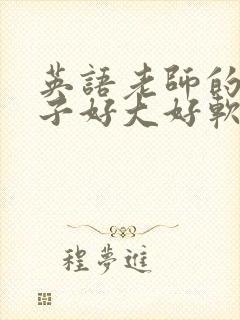 英語老師的
子好大好軟
程夢進